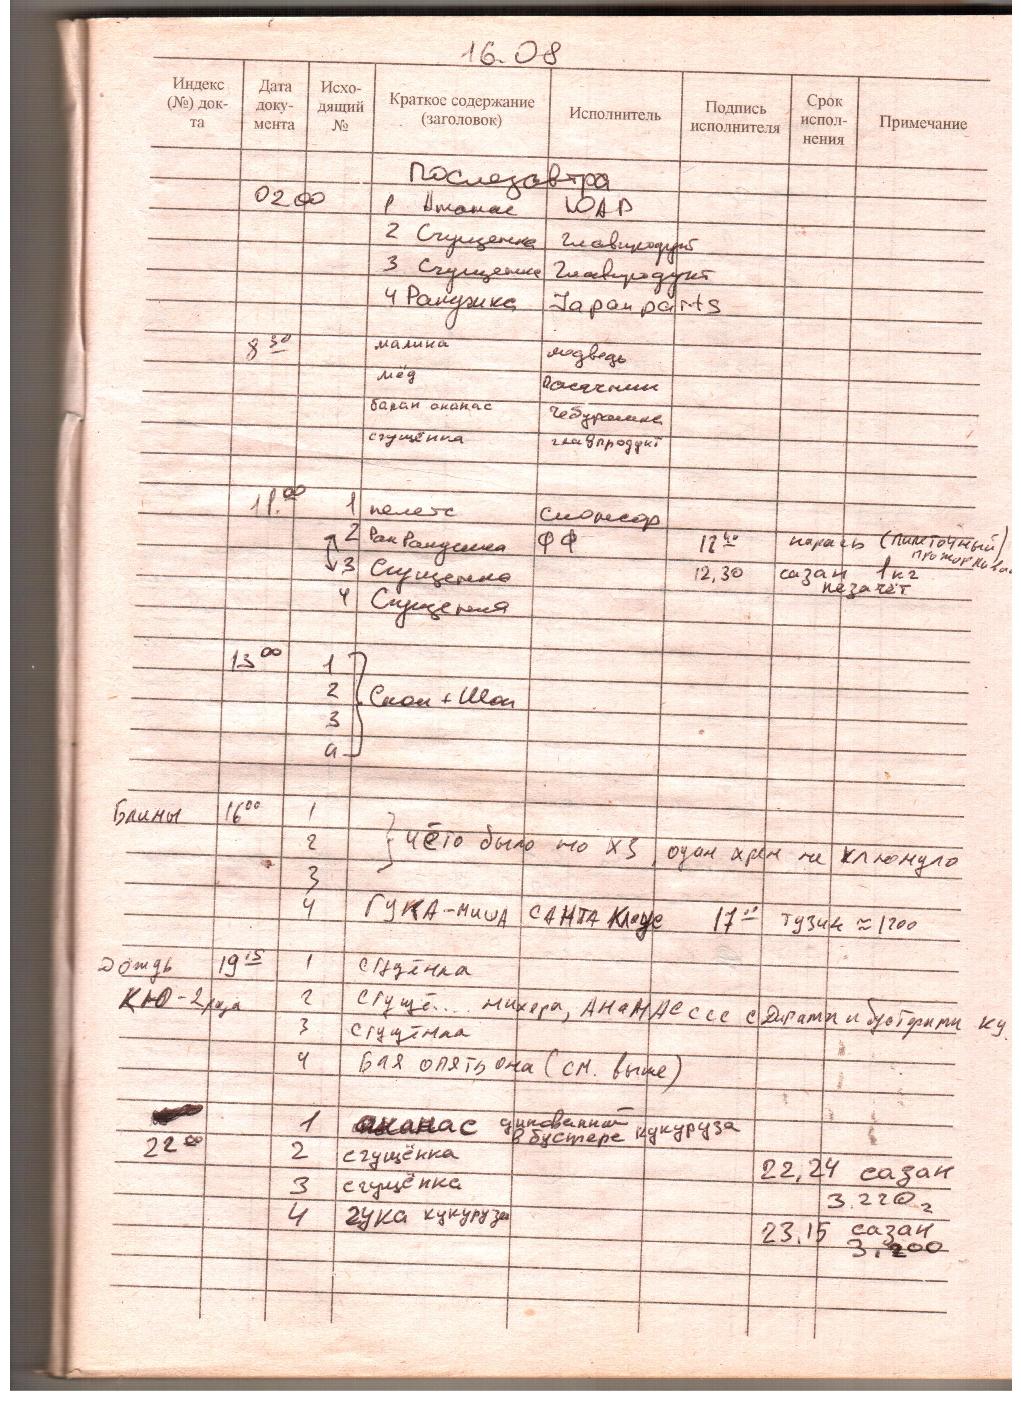 16.08
Индекс (№) док-та Дата доку-мента Исхо-дящий № Краткое содержание (заголовок) Исполнитель Подпись исполнителя Срок испол-нения Примечание
Послезавтра
02.00 1 Ананас ЮАР
2 Сгущенка Главпродукт
3 Сгущенка Главпродукт
4 Ракушка Japan parts
8 30 малина медведь
мёд Пасечник
банан ананас Чебурашка
сгущёнка главпродукт
11.00 1 пелетс спонсор
2 Рак Ракушка ФФ 12 40 карась (
3 Сгущенка 12,30 сазан 1кг
незачёт
4 Сгущенка
13 00 1
2 + 
3
4
Блины 16 00 1
2 чёто было но ХЗ, один хрен не клюнуло
3
4 ГУКА-миша САНТА Клаус 17 тузик ≈ 1200
Дождь 19 15 1 сгущёнка
КЮ - 2 раза 2 сгущё... нихера, АНаНАСссс с и бустерити ку
3 сгущёнка
4 Бля опять она (см. выше)
1 ананас в бустере кукуруза
22 00 2 сгущёнка
22,24 сазан
3 сгущёнка 3.220г
4 гука кукуруза 23.15 сазан
3.200